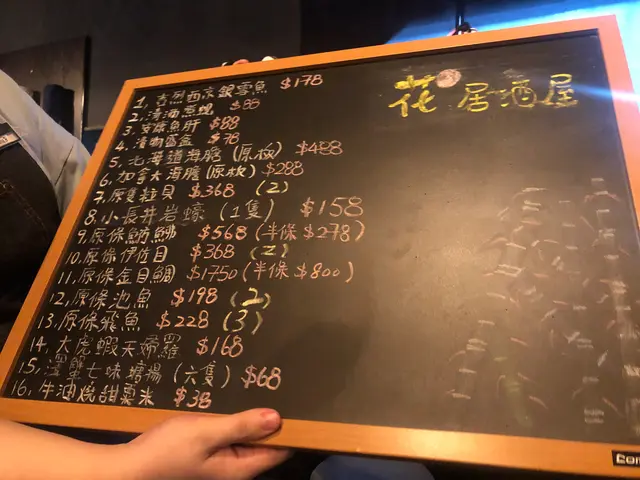 花居酒屋
1, 吉烈西京銀雪魚 $178
2, 清酒煮蜆 $88
3, 安康魚肝 $88
4, 漬物盛盒 $78
5, 北海道海膽 (原板) $488
6, 加拿大海膽 (原板) $288
7, 原隻粒貝 $368 (2)
8, 小長井岩蠔 (1隻) $158
9, 原條鰤魚 $568 (半條 $278)
10, 原條伊佐目 $368 (2)
11, 原條金目鯛 $1750 (半條 $800)
12, 原條池魚 $198 (2)
13, 原條飛魚 $228 (3)
14, 大虎蝦天婦羅 $168
15, 七味揚 (六隻) $68
16, 牛油燒甜粟米 $38
Con